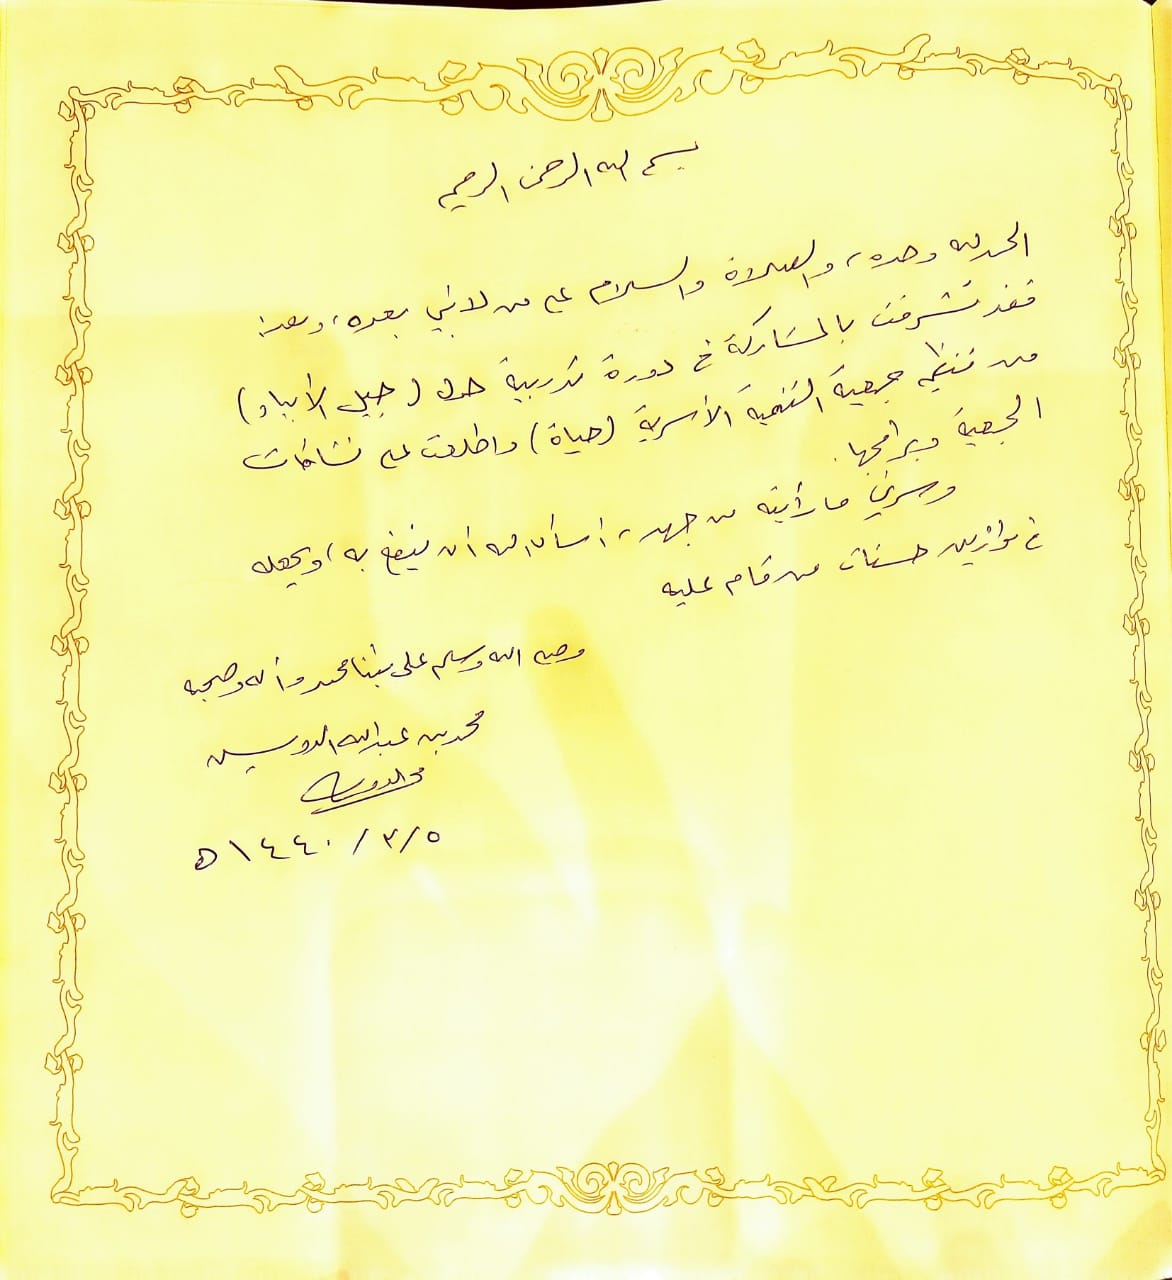 بسم الله الرحمن الرحيم
الحمد لله وحده، والصلاة والسلام على من لا نبي بعده، وبعد:
فقد تشرفت بالمشاركة في دورة تدريبية حول (جيل الآيباد)
من تنظيم جمعية التنمية الأسرية (حياة) واطلعت على نشاطات
الجمعية وبرامجها.
وسرني ما رأيته من جهد، أسأل الله أن ينفع به، ويجعله
في موازين حسنات من قام عليه
وصلى الله وسلم على نبينا محمد وآله وصحبه
محمد بن عبدالله الدويش
محمد الدويش
٥/٣/١٤٤٠ه